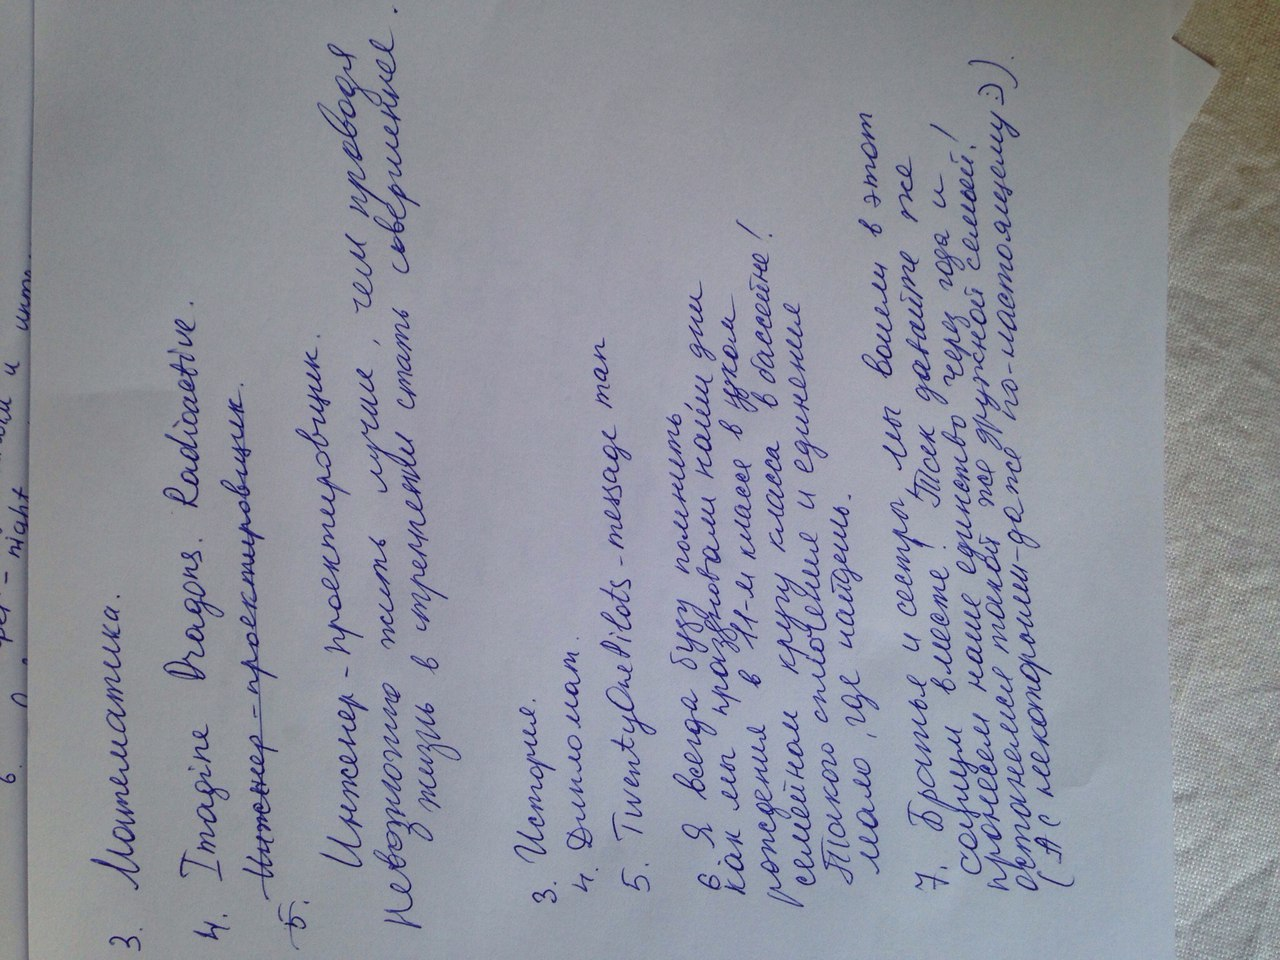 6. - night и
3. Математика.
4. Imagine Dragons. Radioactive.
5. Инженер-проектировщик.
Инженер-проектировщик.
Невозможно жить лучше, чем проводя
жизнь в стремлении стать совершеннее.
3. История.
4. Дипломат.
5. TwentyOnePilots - message man
6. Я всегда буду помнить
как мы праздновали наши дни
рождения в 11-м классе в узком
семейном кругу класса в бассейне!
Такого сплочения и единения
мало, где найдешь.
7. Братья и сестры, мы вошли в этот
социум вместе! Так давайте же
пронесем наше единство через года и
останемся такой же дружной семьей!
(А с некоторыми - даже по-настоящему =)).